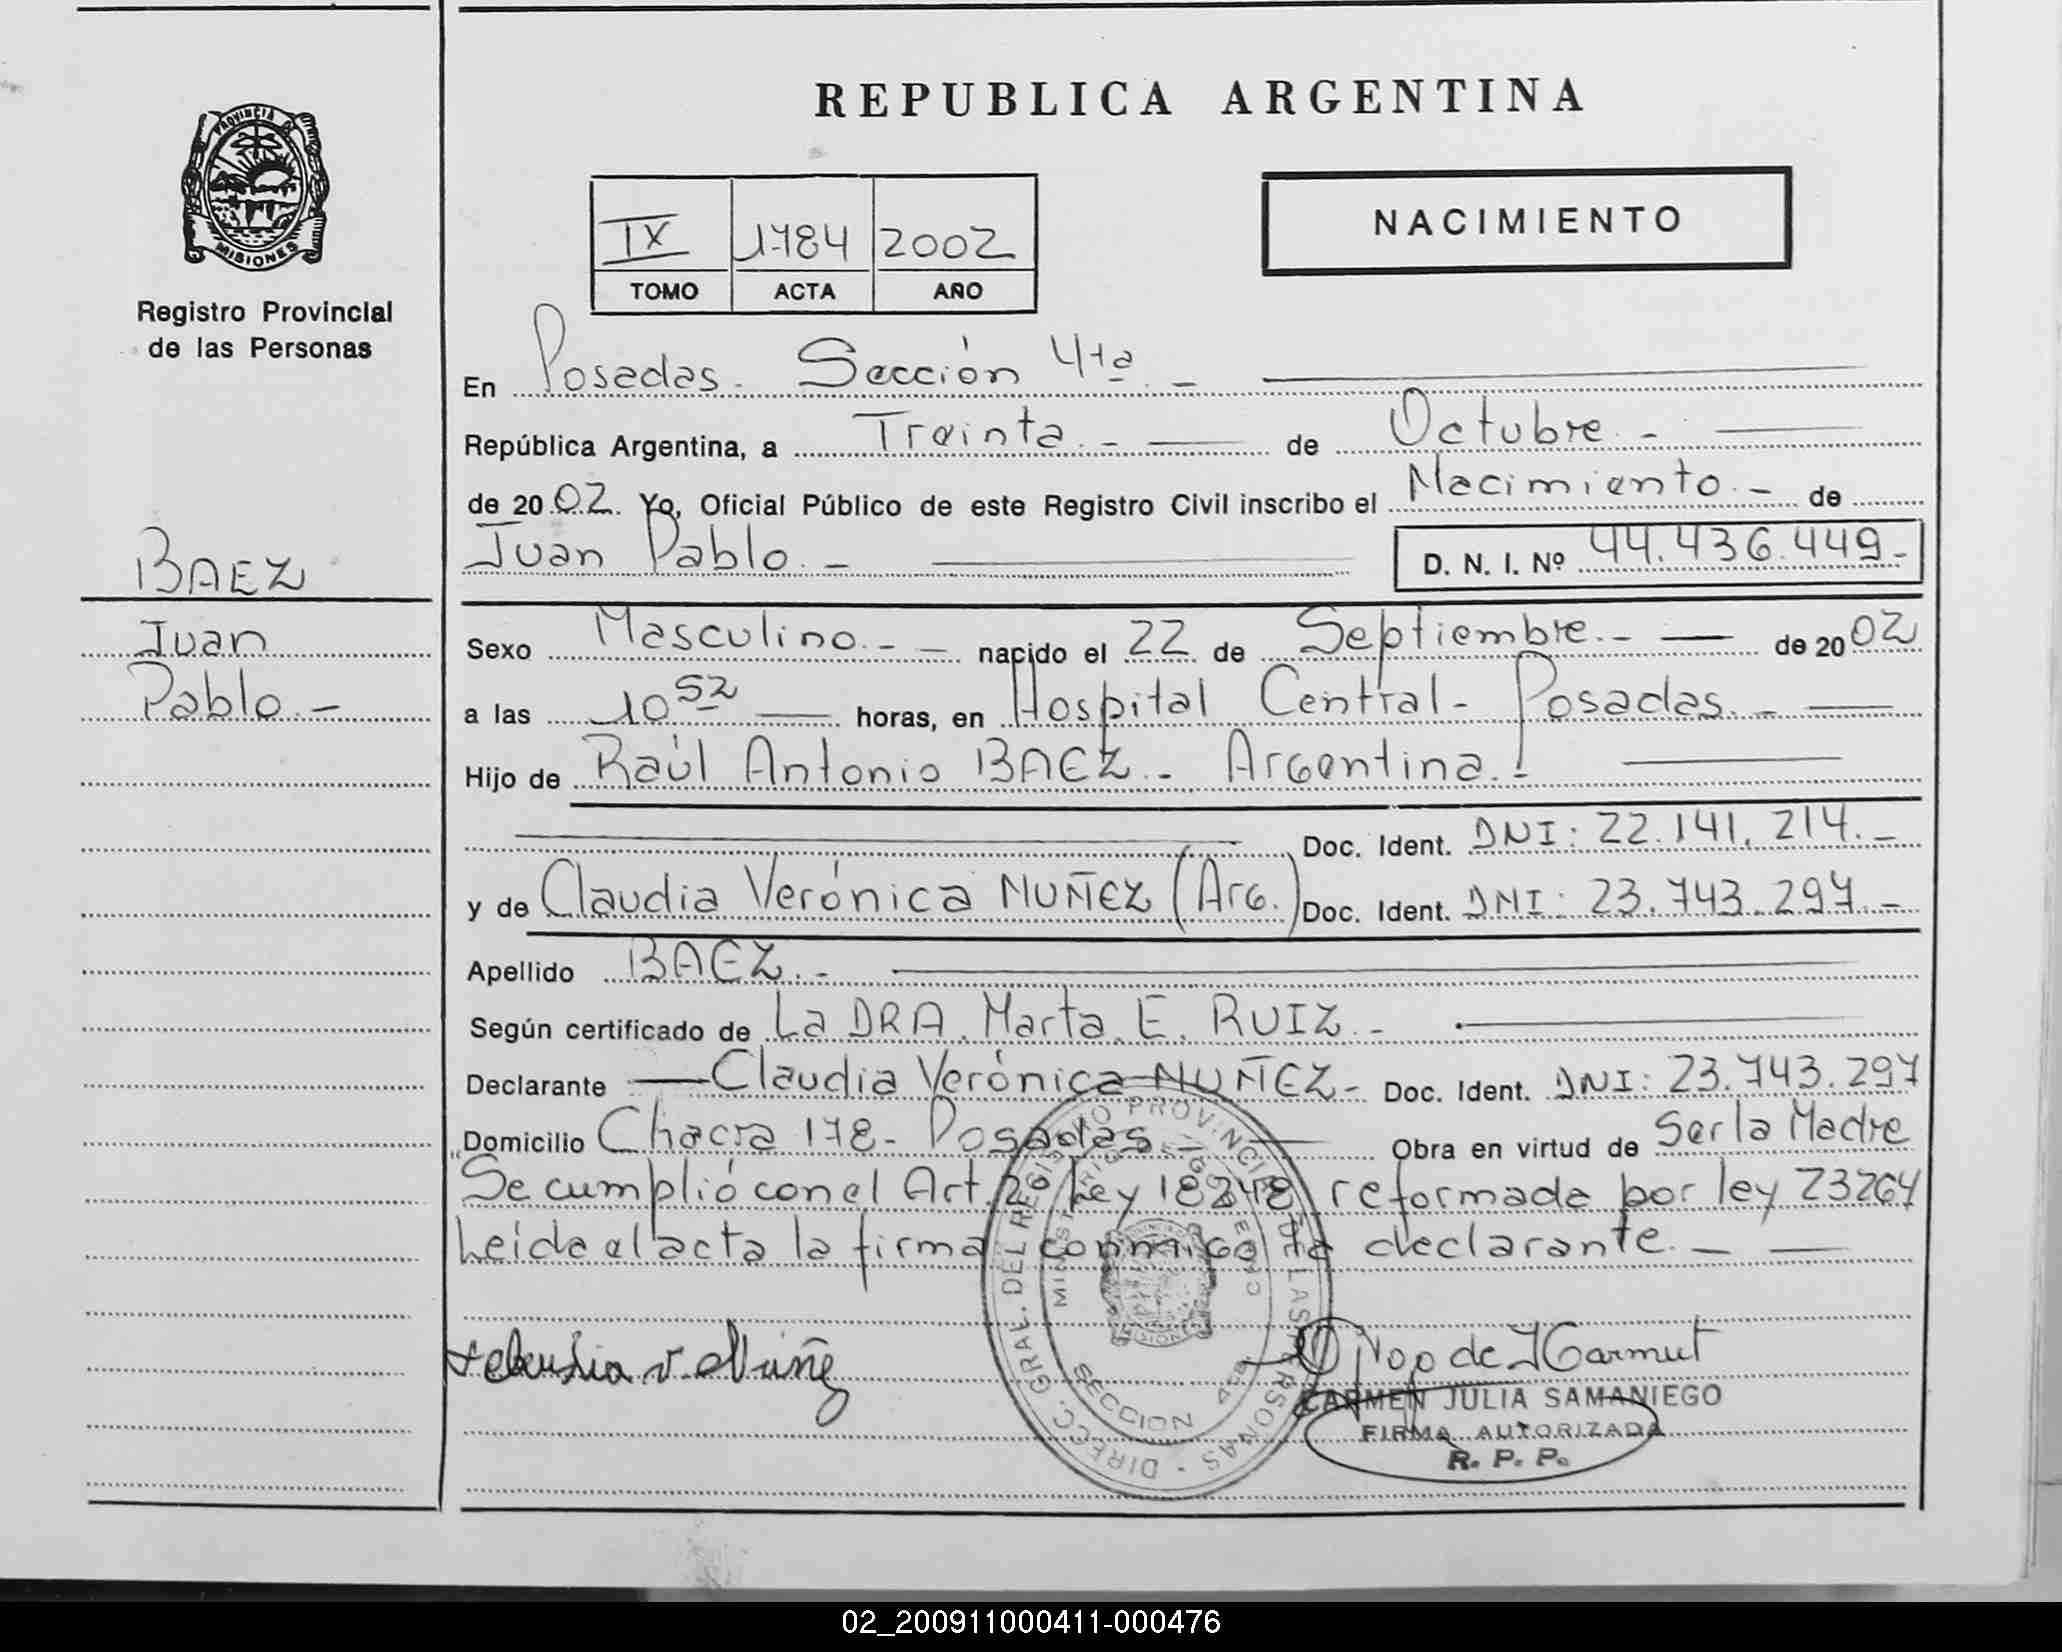 PROVINCIA DE
MISIONES
Registro Provincial
de las Personas
BAEZ
Juan
Pablo.-
REPUBLICA ARGENTINA
IX 1784 2002
TOMO ACTA AÑO
NACIMIENTO
En Posadas. Sección 4ta.-
República Argentina, a Treinta.- de Octubre.-
de 2002. Yo, Oficial Público de este Registro Civil inscribo el Nacimiento.- de
Juan Pablo.- D. N. I. Nº 44.436.449-
Sexo Masculino.- nacido el 22 de Septiembre.- de 2002
a las 10 52 horas, en Hospital Central- Posadas.-
Hijo de Raúl Antonio BAEZ.- Argentina.-
Doc. Ident. DNI: 22.141.214.-
y de Claudia Verónica NUÑEZ (Arg.) Doc. Ident. DNI: 23.743.297.-
Apellido BAEZ.-
Según certificado de La DRA. Marta E. RUIZ.-
Declarante Claudia Verónica NUÑEZ- Doc. Ident. DNI: 23.743.297
Domicilio Chacra 178- Posadas- Obra en virtud de Ser la Madre
Se cumplió con el Art. 2º Ley 18248 reformada por ley 23264
Leída el acta la firma conmigo la declarante.-
DIRECC. GRAL. DEL REGISTRO PROVINCIAL DE LAS PERSONAS
SECCION 4ta
CARMEN JULIA SAMANIEGO
FIRMA AUTORIZADA
R. P. P.
02_200911000411-000476